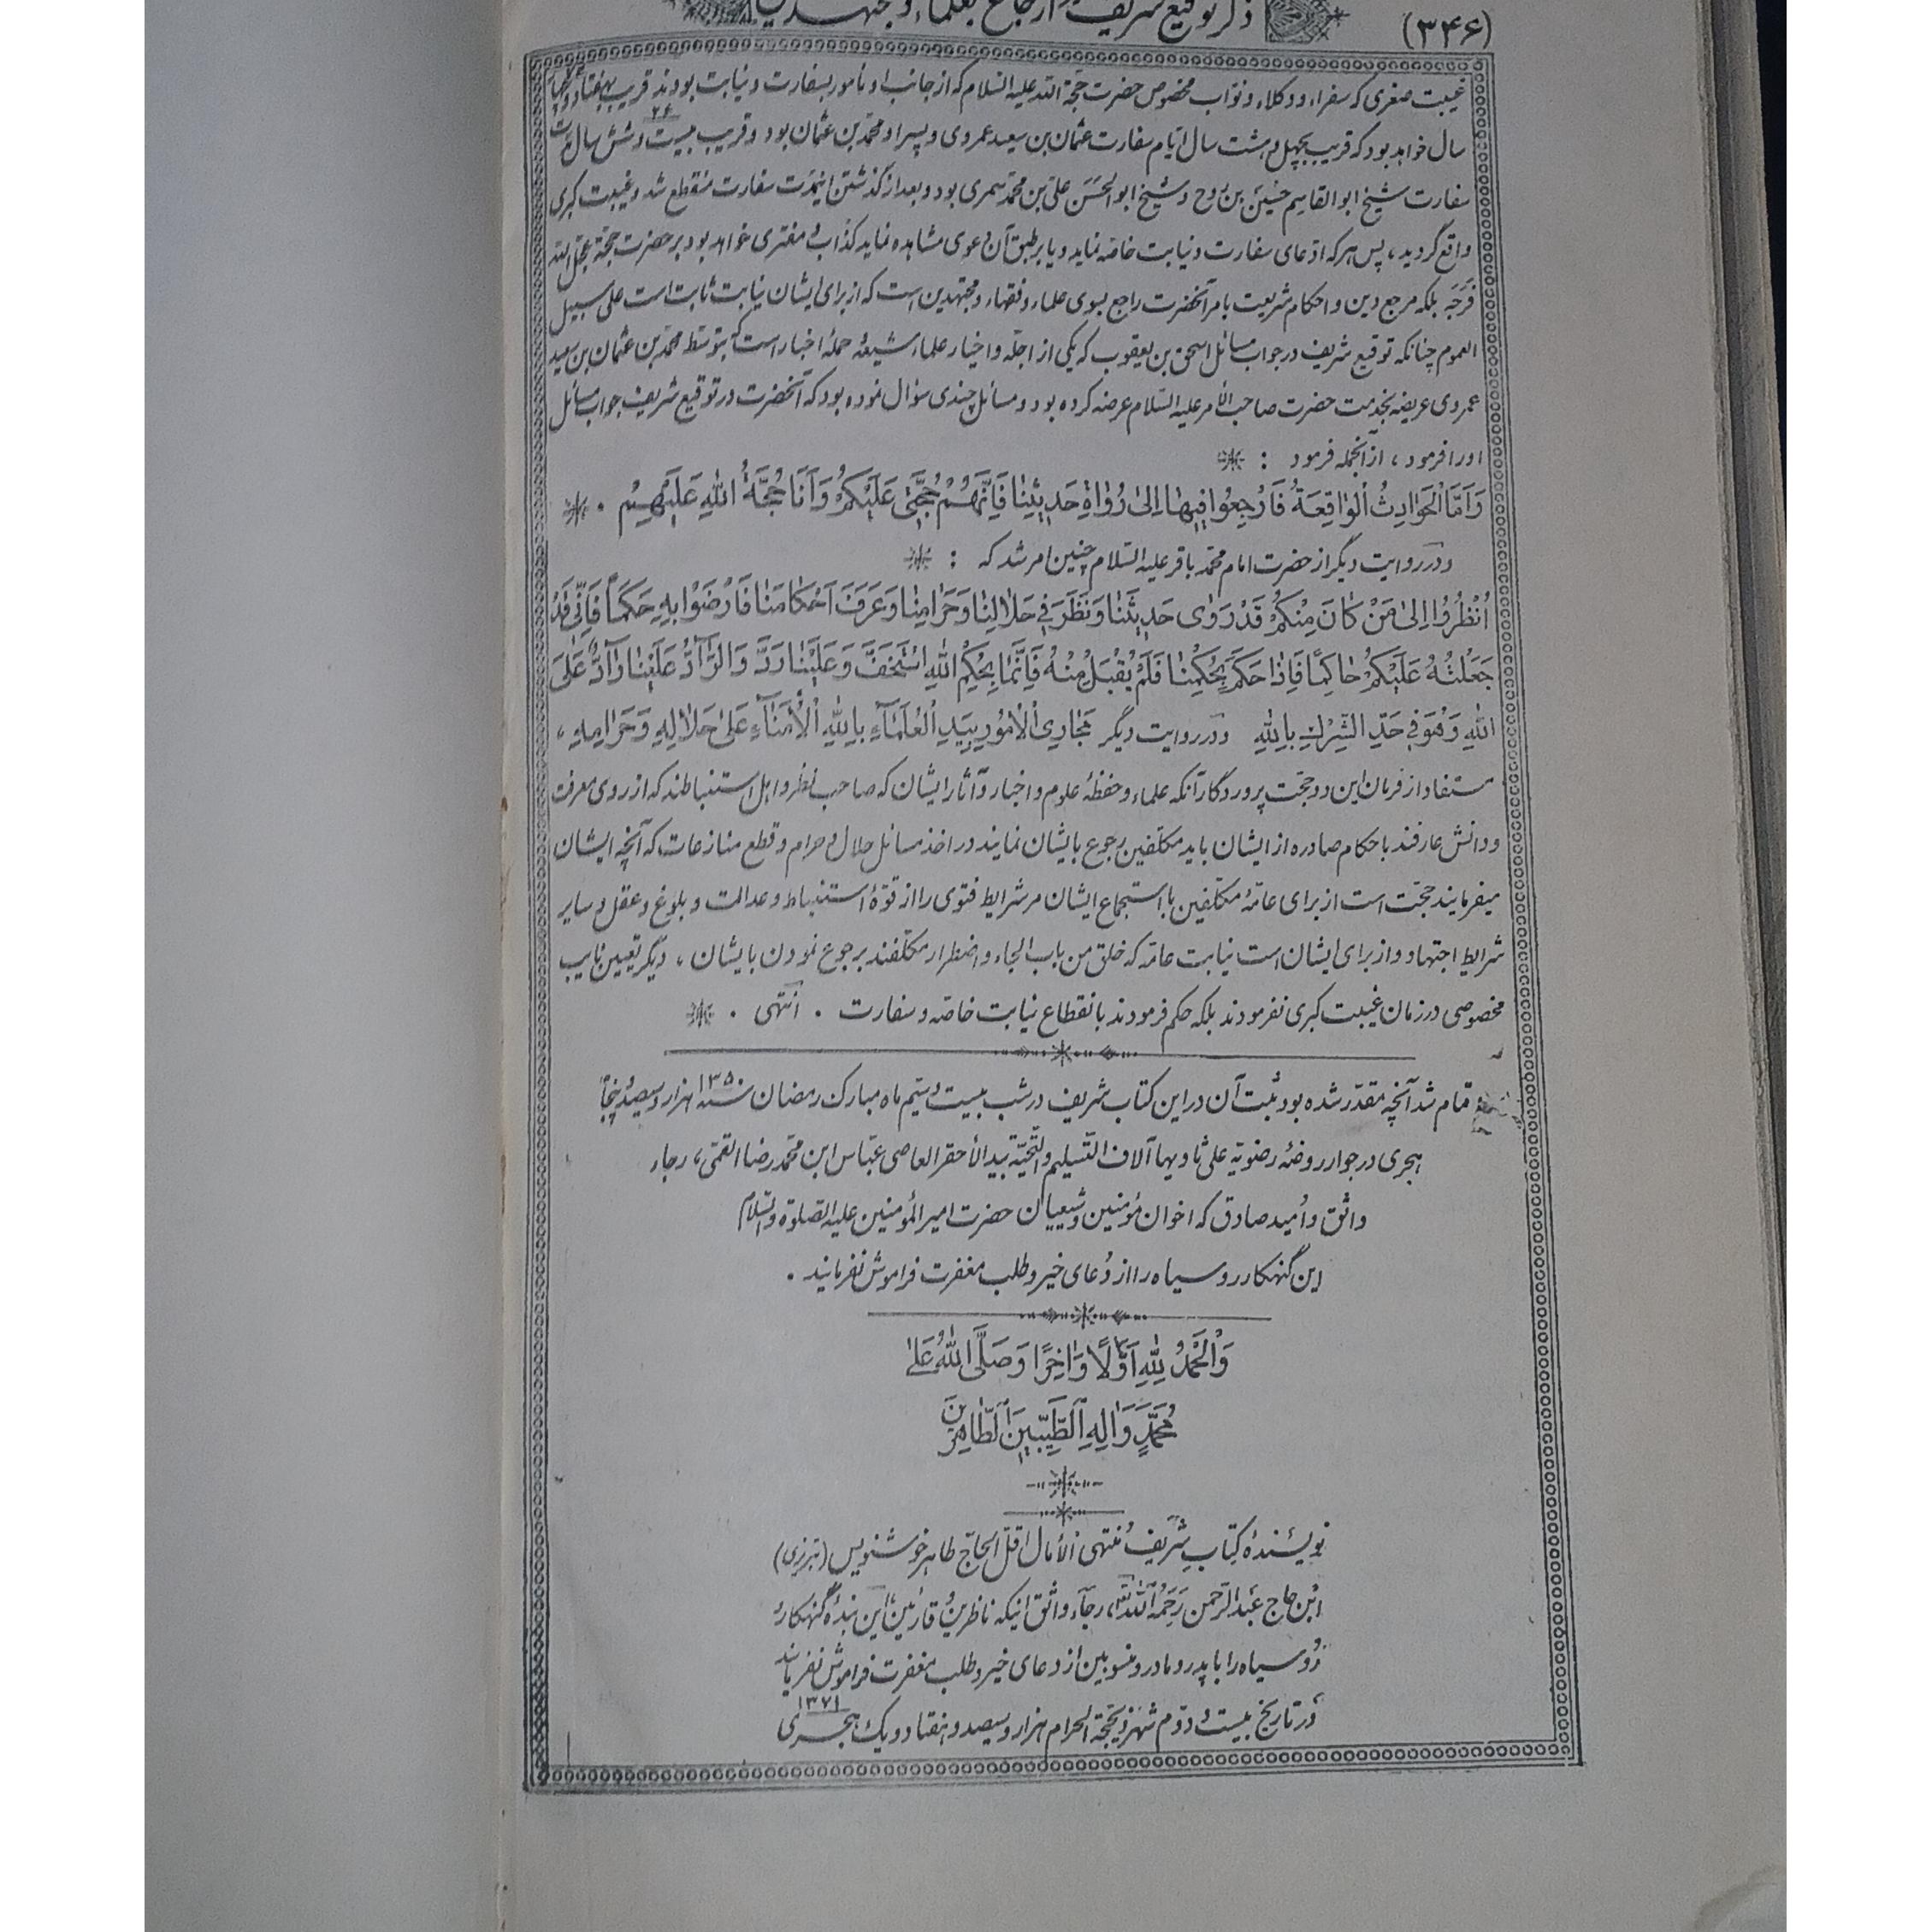 (۳۴۶)
ذکر توقیع شریف و ارجاع بعلماء و مجتهدین
غیبت صغری که سفراء و وکلاء و نوّاب مخصوص حضرت حجّة الله علیه السلام که از جانب او مأمور بسفارت و نیابت بودند قریب بهفتاد و چهار
سال خواهد بود که قریب بچهل و هشت سال ایّام سفارت عثمان بن سعید عمروی و پسر او محمّد بن عثمان بود و قریب بیست و شش سال مدّت
۲۶
سفارت شیخ ابوالقاسم حسین بن روح و شیخ ابوالحسن علیّ بن محمّد سمری بود و بعد از گذشتن اینمدّت سفارت منقطع شد و غیبت کبری
واقع گردید، پس هرکه ادّعای سفارت و نیابت خاصّه نماید و یا بر طبق آن دعوی مشاهده نماید کذّاب و مفتری خواهد بود بر حضرت حجّة عجّل الله
فرجه بلکه مرجع دین و احکام شریعت بامر آنحضرت راجع بسوی علماء و فقهاء و مجتهدین است که از برای ایشان نیابت ثابت است علی سبیل
العموم چنانکه توقیع شریف در جواب مسائل اسحق بن یعقوب که یکی از اجلّه و اخیار علماء شیعه حملهٔ اخبار است که بتوسّط محمّد بن عثمان بن سعید
عمروی عریضه بخدمت حضرت صاحب الأمر علیه السّلام عرضه کرده بود و مسائل چندی سؤال نموده بود که آنحضرت در توقیع شریف جواب مسائل
او را فرمود، از آنجمله فرمود :
وَاَمَّا الْحَوٰادِثُ الْوٰاقِعَةُ فَارْجِعُوا فِیهٰا اِلیٰ رُوٰاةِ حَدِیثِنٰا فَاِنَّهُمْ حُجَّتِی عَلَیْکُمْ وَاَنَا حُجَّةُ اللّٰهِ عَلَیْهِمْ .
و در روایت دیگر از حضرت امام محمّد باقر علیه السّلام چنین امر شد که :
اُنْظُرُوا اِلیٰ مَنْ کٰانَ مِنْکُمْ قَدْ رَوٰی حَدِیثَنٰا وَنَظَرَ فِی حَلاٰلِنٰا وَحَرٰامِنٰا وَعَرَفَ اَحْکٰامَنٰا فَارْضَوْا بِهِ حَکَمًا فَاِنِّی قَدْ
جَعَلْتُهُ عَلَیْکُمْ حٰاکِمًا فَاِذٰا حَکَمَ بِحُکْمِنٰا فَلَمْ یُقْبَلْ مِنْهُ فَاِنَّمٰا بِحُکْمِ اللّٰهِ اسْتَخَفَّ وَعَلَیْنٰا رَدَّ وَالرّٰآدُّ عَلَیْنٰا رٰآدٌّ عَلَی
اللّٰهِ وَهُوَ فِی حَدِّ الشِّرْکِ بِاللّٰهِ و در روایت دیگر مَجٰارِی الْاُمُورِ بِیَدِ الْعُلَمٰآءِ بِاللّٰهِ الْاُمَنٰآءِ عَلیٰ حَلاٰلِهِ وَحَرٰامِهِ،
مستفاد از فرمان این دو حجّت پروردگار آنکه علماء و حفظهٔ علوم و اخبار و آثار ایشان که صاحب نظر و اهل استنباطند که از روی معرفت
و دانش عارفند باحکام صادره از ایشان باید مکلّفین رجوع بایشان نمایند در اخذ مسائل حلال و حرام و قطع منازعات که آنچه ایشان
میفرمایند حجّت است از برای عامّهٔ مکلّفین با استجماع ایشان مر شرایط فتوی را از قوّهٔ استنباط و عدالت و بلوغ و عقل و سایر
شرایط اجتهاد و از برای ایشان است نیابت عامّه که خلق من باب الجاء و اضطرار مکلّفند برجوع نمودن بایشان، دیگر تعیین نایب
مخصوصی در زمان غیبت کبری نفرمودند بلکه حکم فرمودند بانقطاع نیابت خاصّه و سفارت . انتهی .
تمام شد آنچه مقدّر شده بود ثبت آن در این کتاب شریف در شب بیست و یّم ماه مبارک رمضان سنه ۱۳۵۰ هزار و سیصد و پنجاه
هجری در جوار روضهٔ رضویّه علی ثاویها آلاف التّسلیم والتّحیّة بید الأحقر العاصی عبّاس ابن محمّد رضا القمّی، رجاء
واثق و اُمید صادق که اخوان مؤمنین و شیعیان حضرت امیرالمؤمنین علیه الصّلوة والسّلام
این گنهکار رو سیاه را از دُعای خیر و طلب مغفرت فراموش نفرمایند .
وَالْحَمْدُ لِلّٰهِ اَوَّلًا وَاٰخِرًا وَصَلَّی اللّٰهُ عَلیٰ
مُحَمَّدٍ وَاٰلِهِ الطَّیِّبِینَ الطّٰاهِرِینَ
نویسندهٔ کتاب شریف منتهی الآمال اقلّ الحاجّ طاهر خوشنویس (تبریزی)
ابن حاج عبدالرّحمن رَحِمَهُ اللّٰه، رجآء واثق اینکه ناظرین و قارئین این بندهٔ گنهکار
رُو سیاه را با پدر و مادر و منسوبین از دعای خیر و طلب مغفرت فراموش نفرمایند
در تاریخ بیست و دوّم شهر ذیحجّة الحرام هزار و سیصد و هفتاد و یک هجری
۱۳۷۱